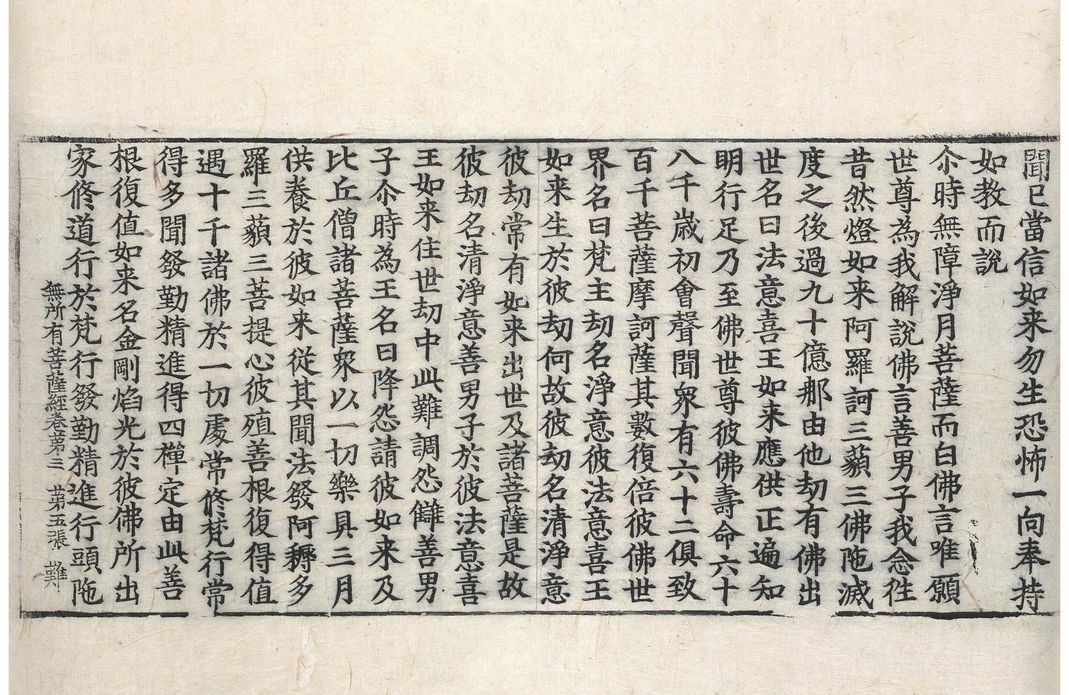 聞已當信如来勿生恐怖一向奉持
如教而說
尒時無障淨月菩薩而白佛言唯願
世尊為我解說佛言善男子我念徃
昔然燈如来阿羅訶三藐三佛陁滅
度之後過九十億那由他劫有佛出
世名曰法意喜王如来應供正遍知
明行足乃至佛世尊彼佛壽命六十
八千歲初會聲聞衆有六十二俱致
百千菩薩摩訶薩其數復倍彼佛世
界名曰梵主劫名淨意彼法意喜王
如来生於彼劫何故彼劫名清淨意
彼劫常有如来出世及諸菩薩是故
彼劫名清淨意善男子於彼法意喜
王如来住世劫中此難調怨讎善男
子尒時為王名曰降怨請彼如来及
比丘僧諸菩薩衆以一切樂具三月
供養於彼如来從其聞法發阿耨多
羅三藐三菩提心彼殖善根復得值
遇十千諸佛於一切處常修梵行常
得多聞發勤精進得四禪定由此善
根復值如来名金剛焰光於彼佛所出
家修道行於梵行發勤精進行頭陁
無所有菩薩經卷第三　苐五張　難